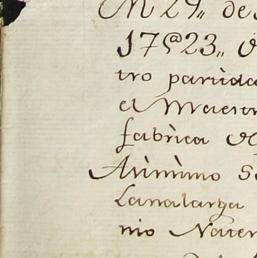 En 29,, de
17@23,, d
tro partida
el Maestr
fabrica d
Asimismo S
Lanalarga
nio Naver